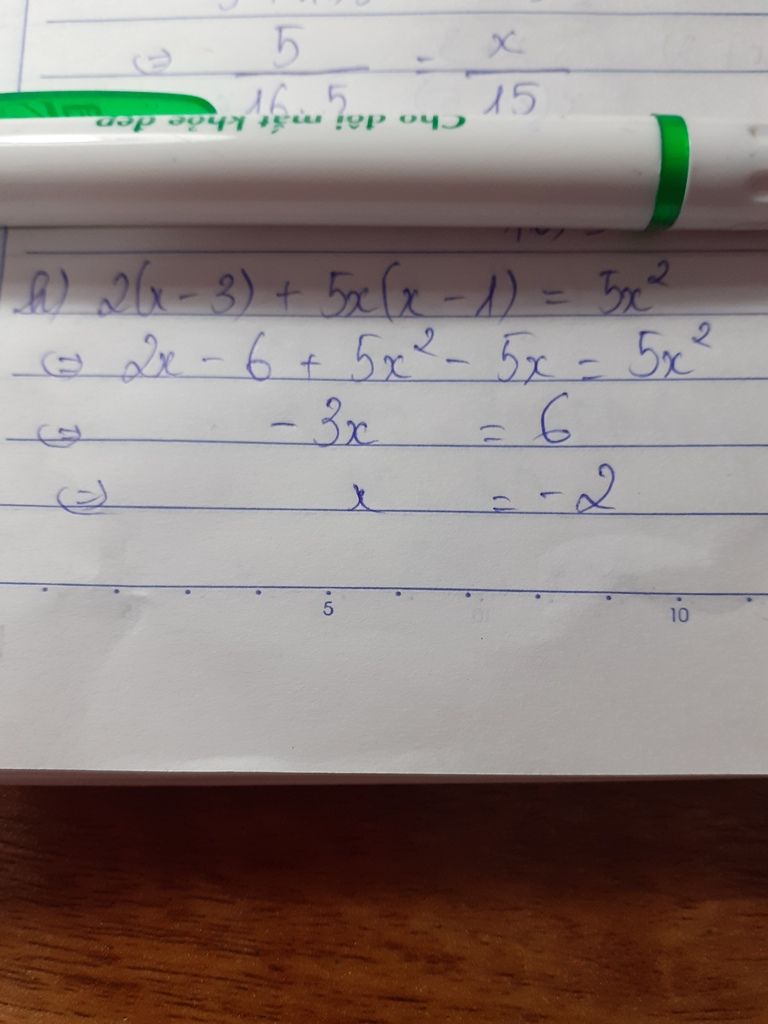 ⇔ 5/16,5 = x/15
Cho đôi mắt khỏe đẹp
h) 2(x - 3) + 5x(x - 1) = 5x²
⇔ 2x - 6 + 5x² - 5x = 5x²
⇔ - 3x = 6
⇔ x = - 2
5 10